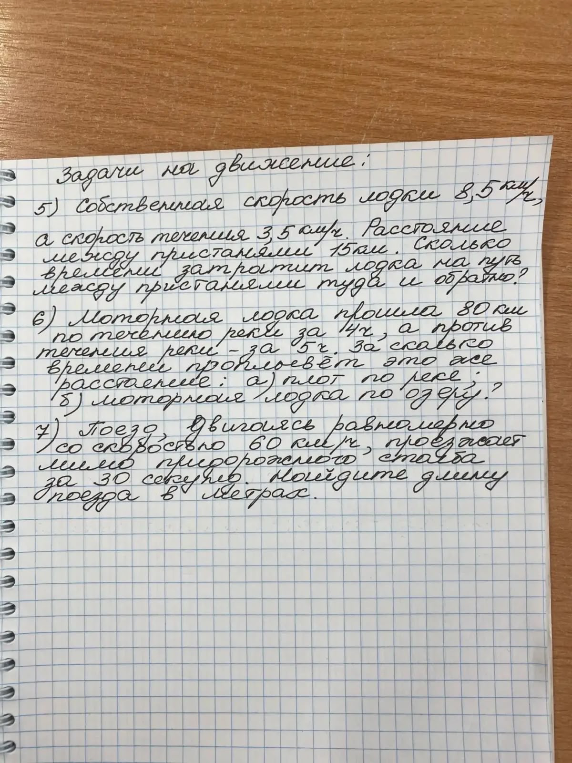 Задачи на движение:
5) Собственная скорость лодки 8,5 км/ч,
а скорость течения 3,5 км/ч. Расстояние
между пристанями 15 км. Сколько
времени затратит лодка на путь
между пристанями туда и обратно?
6) Моторная лодка прошла 80 км
по течению реки за 4ч, а против
течения реки - за 5ч. За сколько
времени проплывёт это же
расстаение: а) плот по реке;
б) моторная лодка по озеру?
7) Поезд, двигаясь равномерно
со скоростью 60 км/ч, проезжает
мимо придорожного столба
за 30 секунд. Найдите длину
поезда в метрах.